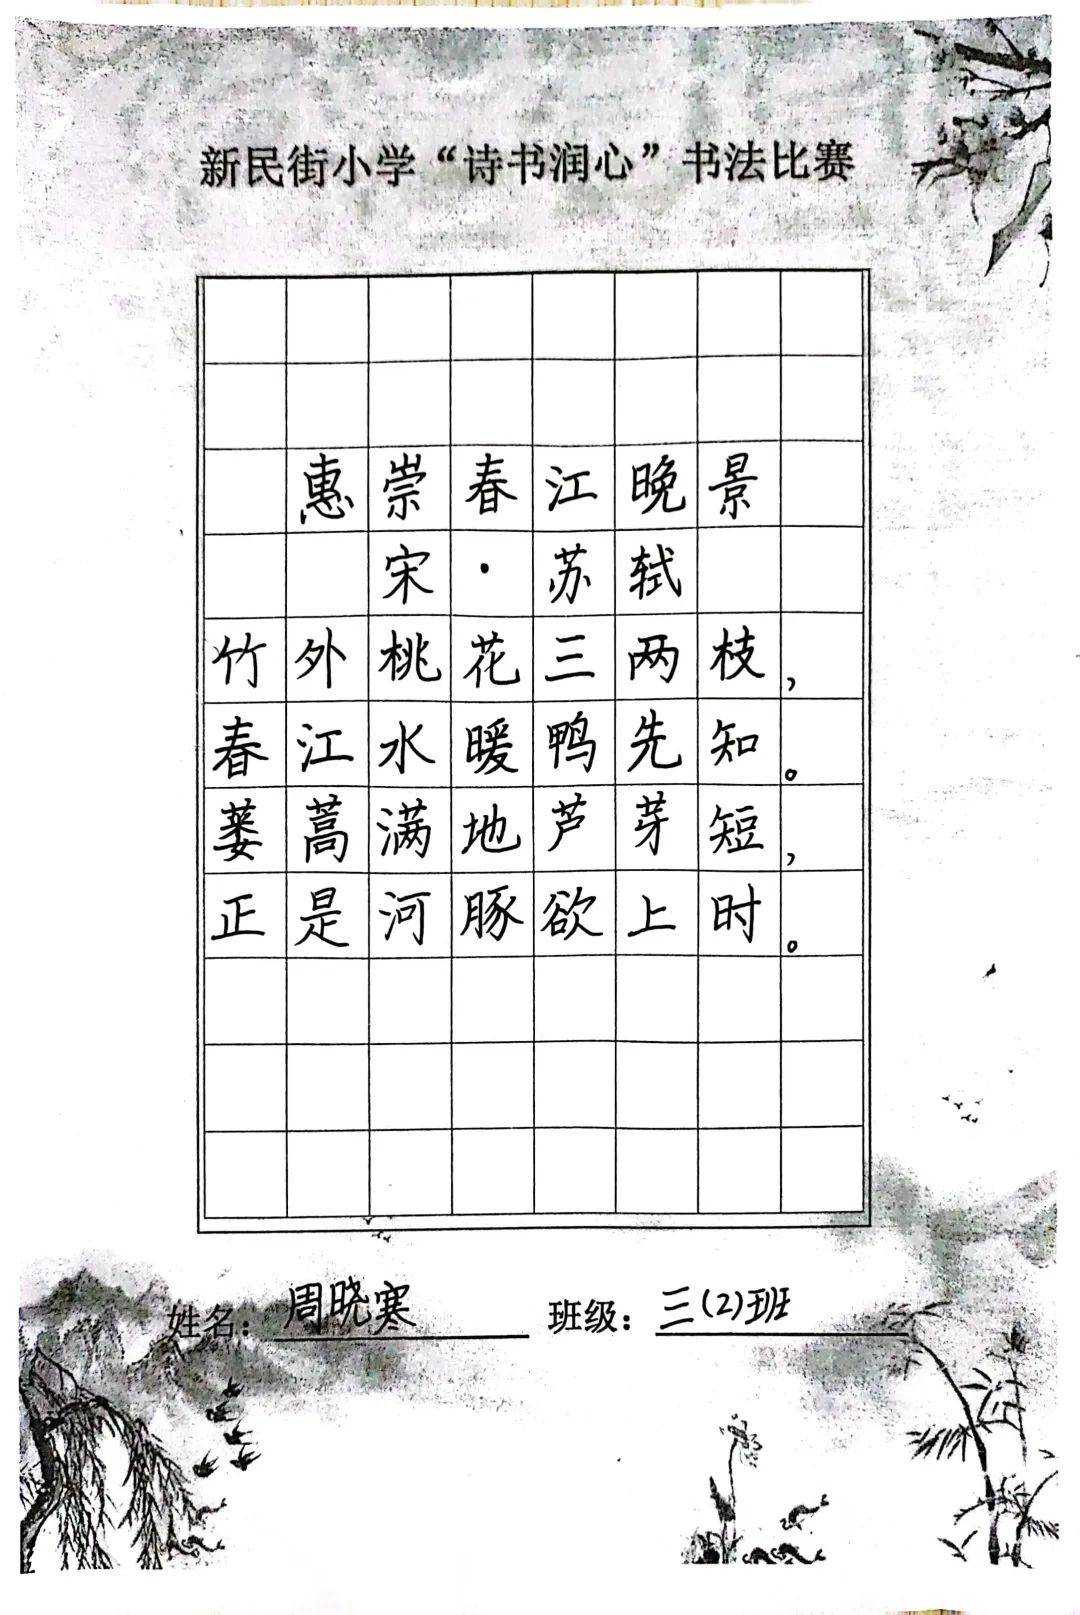 新民街小学“诗书润心”书法比赛
惠崇春江晚景
宋·苏轼
竹外桃花三两枝，
春江水暖鸭先知。
蒌蒿满地芦芽短，
正是河豚欲上时。
姓名：周晓寒 班级：三(2)班